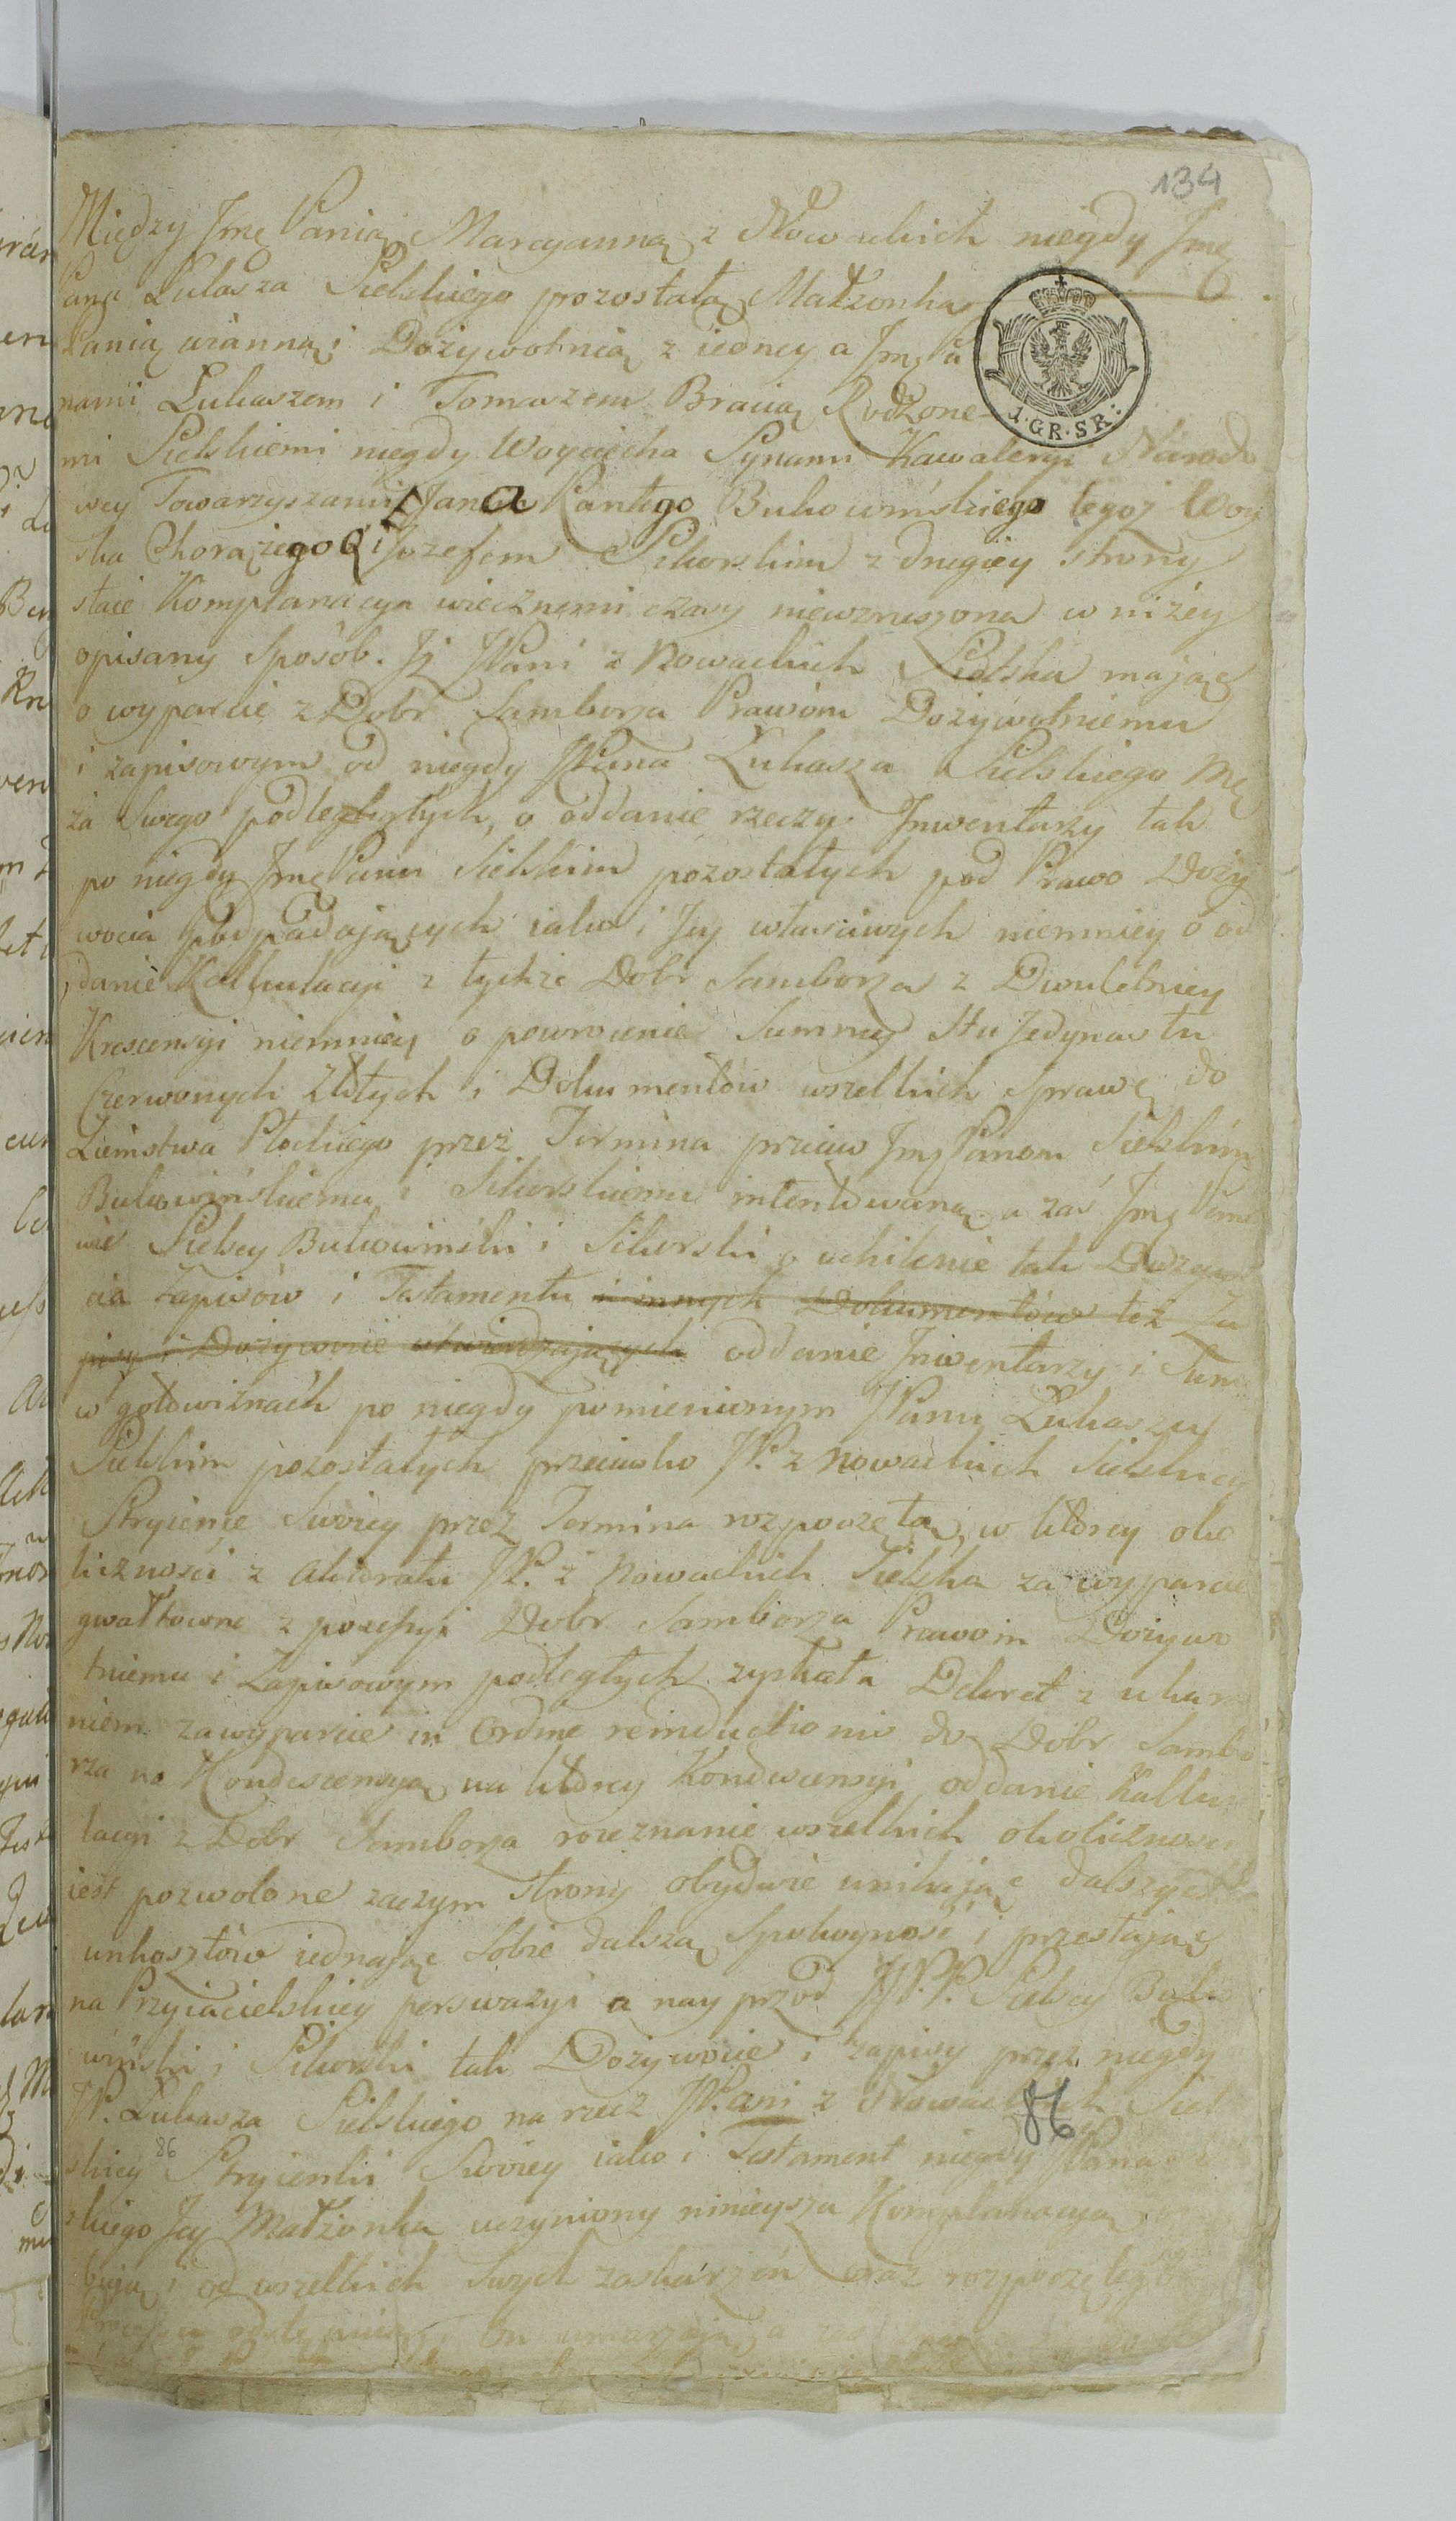 134
Między Jmę Panią Maryanną z Nowackich niegdy Jmę
Pana Łukasza Sielskiego pozostałą Małżonką
Panią wianną i Dożywotnią z iedney a Jmę Pa
nami Łukaszem i Tomaszem Bracią Rodzone
1.GR.SR:
mi Sielskiemi niegdy Woyciecha Synami Kawaleryi Narodo
wey Towarzyszami Jana Kantego Bukowińskiego tegoż Woy
ska Chorążego i Jozefem Sikorskim z drugiey strony
staie Komplanacya wiecznemi czasy niewzruszona w niżey
opisany Sposób. Iż JPani z Nowackich Sielska maiąc
o wyparcie z Dobr Samborza Prawom Dożywotniemu
i zapisowym od niegdy JPana Łukasza Sielskiego Mę
ża Swego podległych, o oddanie rzeczy Inwentarzy tak
po niegdy Jmę Panu Sielskim pozostałych pod Prawo Doży
wocia podpadaiących iako i Jey własciwych niemniey o od
danie Kalkulacyi z tychże Dobr Samborza z Dwuletniey
Krescensyi niemniey o powrocenie Summy Stu Jedynastu
Czerwonych Złotych i Dokumentów wszelkich Sprawę do
Ziemstwa Płockiego przez Termina przeciw Jmę Panom Sielskim
Bukowińskiemu i Sikorskiemu intentowaną a zaś Jmę Pano
wie Sielscy Bukowiński i Sikorski o uchilenie tak Dożywo
cia Zapisów i Testamentu i innych Dokumentów też Za
pisy i Dożywocie utwierdzaiących oddanie Inwentarzy i Sum
w gotowiznach po niegdy pomienionym JPanu Łukaszu
Sielskim pozostałych przeciwko JP. z Nowackich Sielskiey
Stryience Swoiey przez Termina rozpoczętą, w ktorey oko
liczności z Aktoratu JP. z Nowackich Sielska za wyparcie
gwałtowne z possessyi Dobr Samborza Prawom Dożywo
tniemu i Zapisowym podległych zyskała Dekret z ukara
niem za wyparcie in Ordine reinductionis do Dobr Sambo
rza na Kondescensyą na ktorey Kondescensyi oddanie Kalku
lacyi z Dobr Samborza rozeznanie wszelkich okoliczności
iest pozwolone zaczym Strony obydwie unikaiąc dalszych
unkosztów iednaiąc Sobie dalszą Spokoyność i przestaiąc
na Przyiacielskiey perswazyi a nayprzod JJ.P.P. Sielscy Buko
wiński i Sikorski tak Dożywocie i zapisy przez niegdy
JP. Łukasza Sielskiego na rzecz JPani z Nowackich Siel
86
skiey Stryienki Swoiey iako i Testament niegdy JPana
86
skiego Jey Małżonka uczyniony ninieyszą Komplanacyą
buią i od wszelkich Swych zaskarżeń oraz rozpoczętego
Processu odstępuią i On umarzaią a zaś